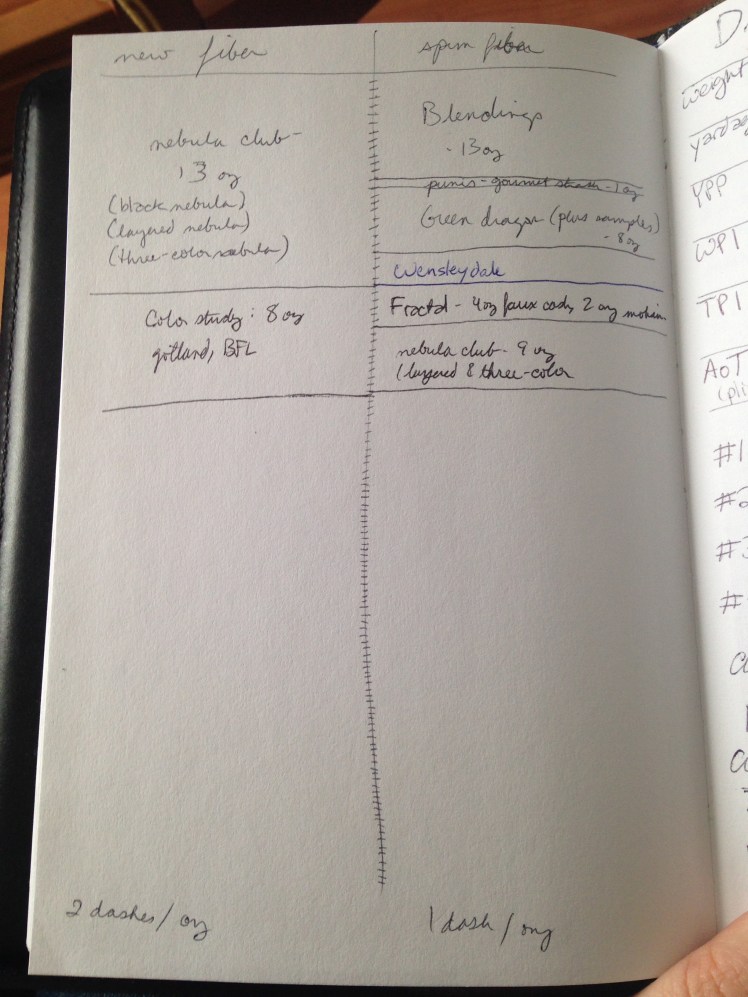 new fiber
nebula club -
13 oz
(black nebula)
(layered nebula)
(three-color nebula)
Color study: 8 oz
gotland, BFL
2 dashes / oz
spun fiber
Blendings
- 13 oz
punis - gourmet stash - 1 oz
Green dragon (plus samples)
- 8 oz
Wensleydale
Fractal - 4 oz faux cash, 2 oz mohair
nebula club - 9 oz
(layered & three-color
1 dash / oz
weight
yardage
YPP
WPI
TPI
AoT
#1
#2
#3
#